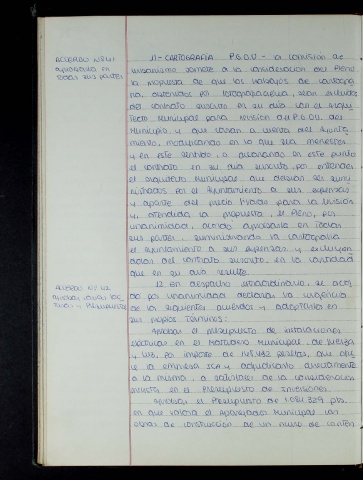 ACUERDO Nº 41
aprobarla en
todas sus partes
11- CARTOGRAFÍA P.G.O.U.- La Comisión de
Urbanismo somete a la consideración del Pleno
la propuesta de que los trabajos de cartogra
fía, obtenidos por fotogrametría, sean excluidos
del contrato suscrito en su día con el Arqui
tecto Municipal para revisión del P.G.O.U. del
Municipio, y que corran a cuenta del Ayunta
miento, modificando en lo que sea menester
y en este sentido o aclarando en este punto
el contrato en su día suscrito, por entender
el Arquitecto Municipal que debían ser sumi
nistrados por el Ayuntamiento a sus expensas
y aparte del precio fijado para la revisión
y, atendida la propuesta, el Pleno, por
unanimidad, acordó aprobarla en todas
sus partes, suministrando la cartografía
el Ayuntamiento a sus expensas y excluyen
dolas del contrato suscrito en la cantidad
que en su día resulte.
ACUERDO Nº 42
aprobar varias
y Presupuestos
12 En despacho extraordinario, se acor
dó por unanimidad declarar la urgencia
de los siguientes acuerdos y adoptarlos en
sus propios términos:
Aprobar el presupuesto de instalaciones
eléctricas en el Matadero Municipal, de
y, por importe de pesetas, que ofre
ce la empresa y adjudicarlo directamente
a la misma, a
en el Presupuesto de Inversiones.
Aprobar el Presupuesto de 1.084.329 pts.
en que valora el Aparejador Municipal las
obras de construcción de un muro de conten